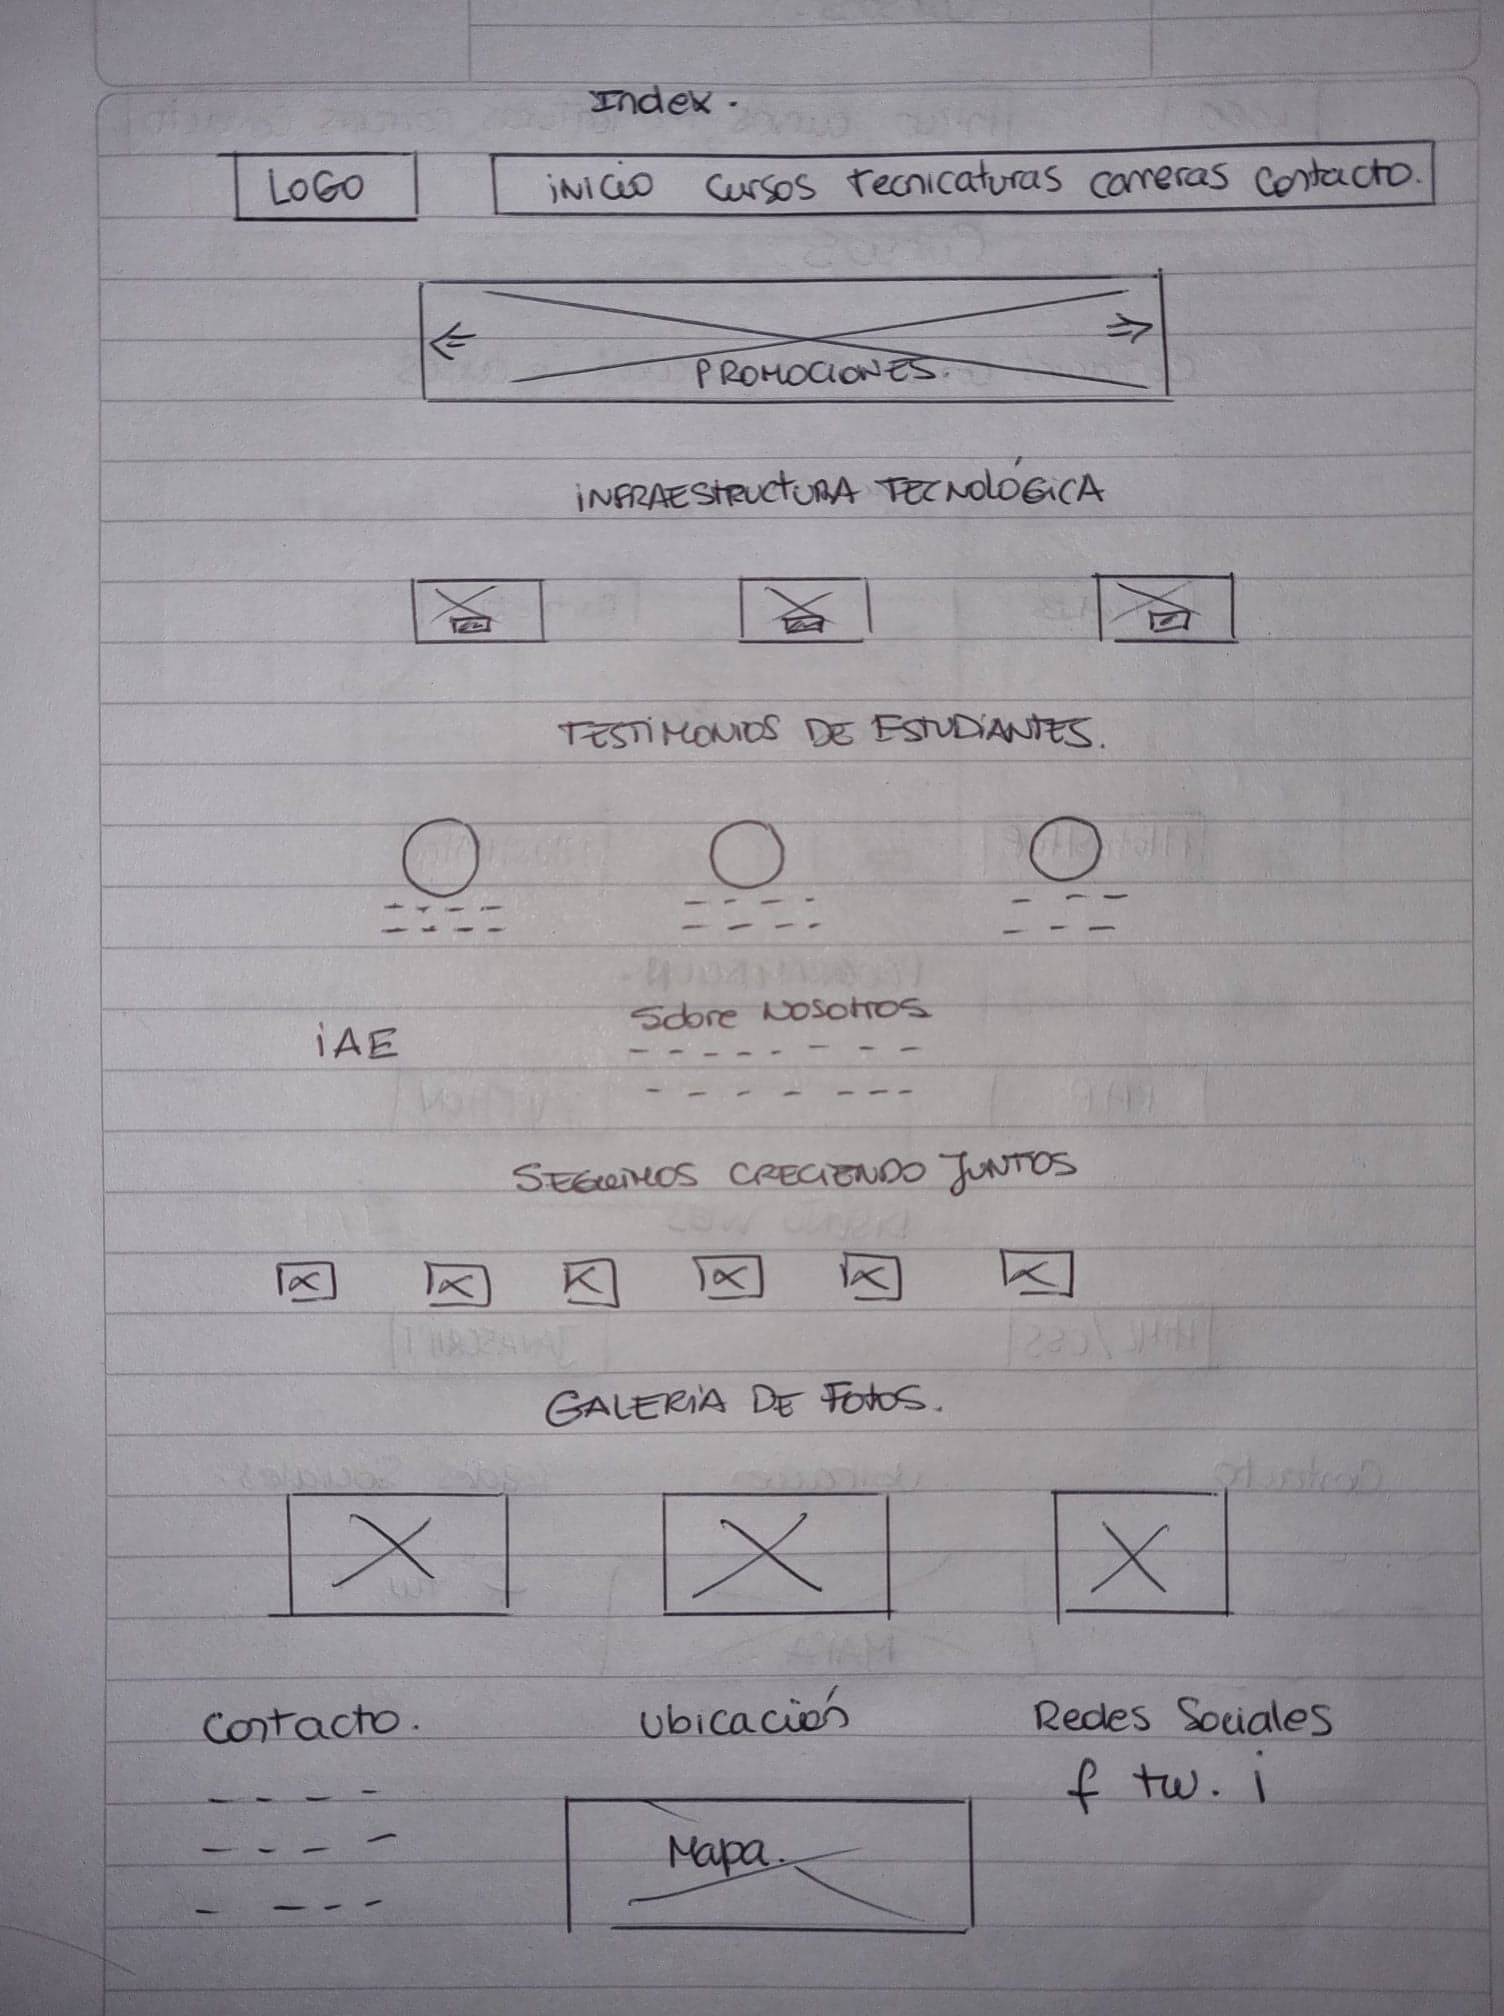 Index.
LOGO
iNICIO Cursos Tecnicaturas carreras Contacto.
PROMOCIONES.
iNFRAESTRUCTURA TECNOLÓGiCA
TESTiMONIOS DE ESTUDiANTES.
Sobre Nosotros
iAE
SEGUIMOS CRECIENDO JUNTOS
GALERiA DE FOTOS.
Contacto. Ubicación Redes Sociales
f tw. i
Mapa.